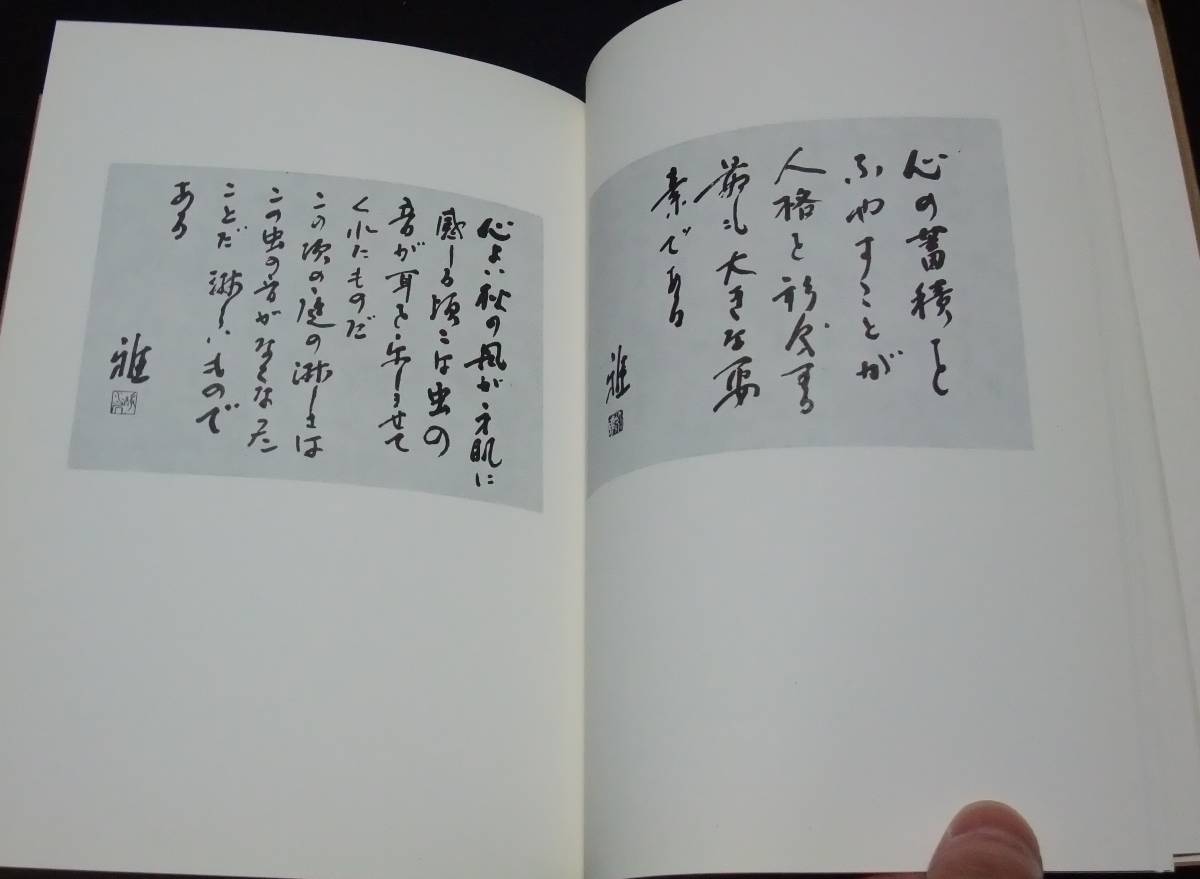 心の蓄積を
ふやすことが
人格を形成する
最も大きな要
素である
雅
心よい秋の風が肌に
感じる頃には虫の
音が耳を楽しませて
くれたものだ
この頃の庭の淋しさは
この虫の音がなくなった
ことだ 淋しいもので
ある
雅